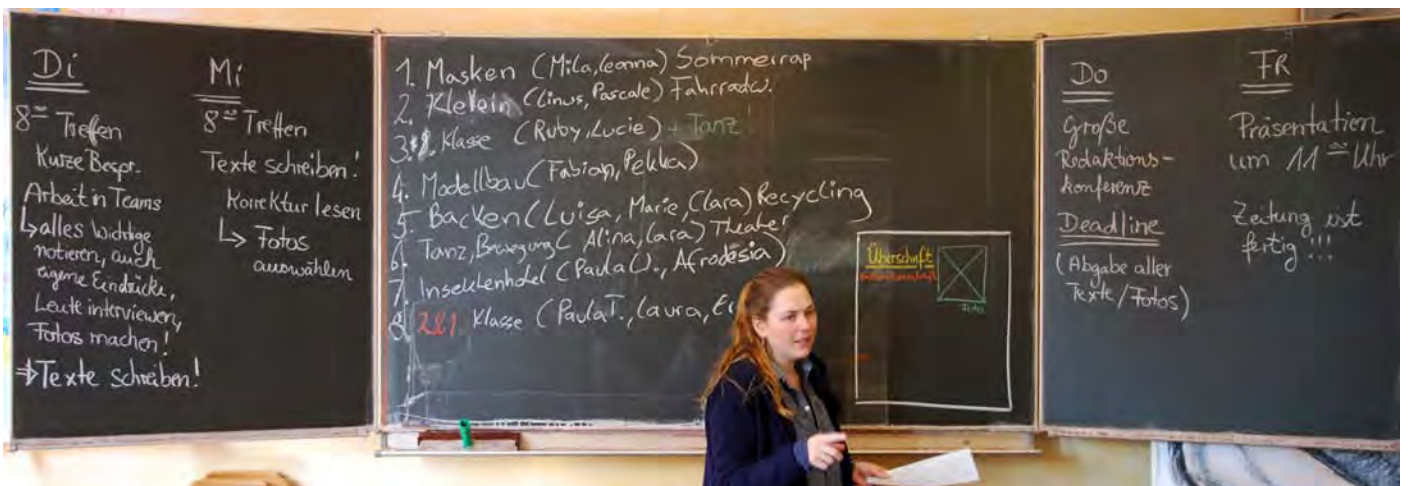 Di
8⁰⁰ Treffen
Kurze Bespr.
Arbeit in Teams
↳ alles Wichtige
notieren, auch
eigene Eindrücke,
Leute interviewen,
Fotos machen!
⇒ Texte schreiben!
Mi
8⁰⁰ Treffen
Texte schreiben!
Korrektur lesen
↳ Fotos
auswählen
1. Masken (Mila, Leonna) Sommerrap
2. Klettern (Linus, Pascale) Fahrradw.
3. Klasse (Ruby, Lucie) + Tanz!
4. Modellbau (Fabian, Pekka)
5. Backen (Luisa, Marie, Clara) Recycling
6. Tanz, Bewegung (Alina, Lara) Theater
7. Insektenhotel (Paula W., Afrodesia)
8. 2&1. Klasse (Paula T., Laura,
Überschrift
Foto
Do
Große
Redaktions-
konferenz
Deadline
(Abgabe aller
Texte/Fotos)
FR
Präsentation
um 11⁰⁰ Uhr
Zeitung ist
fertig!!!